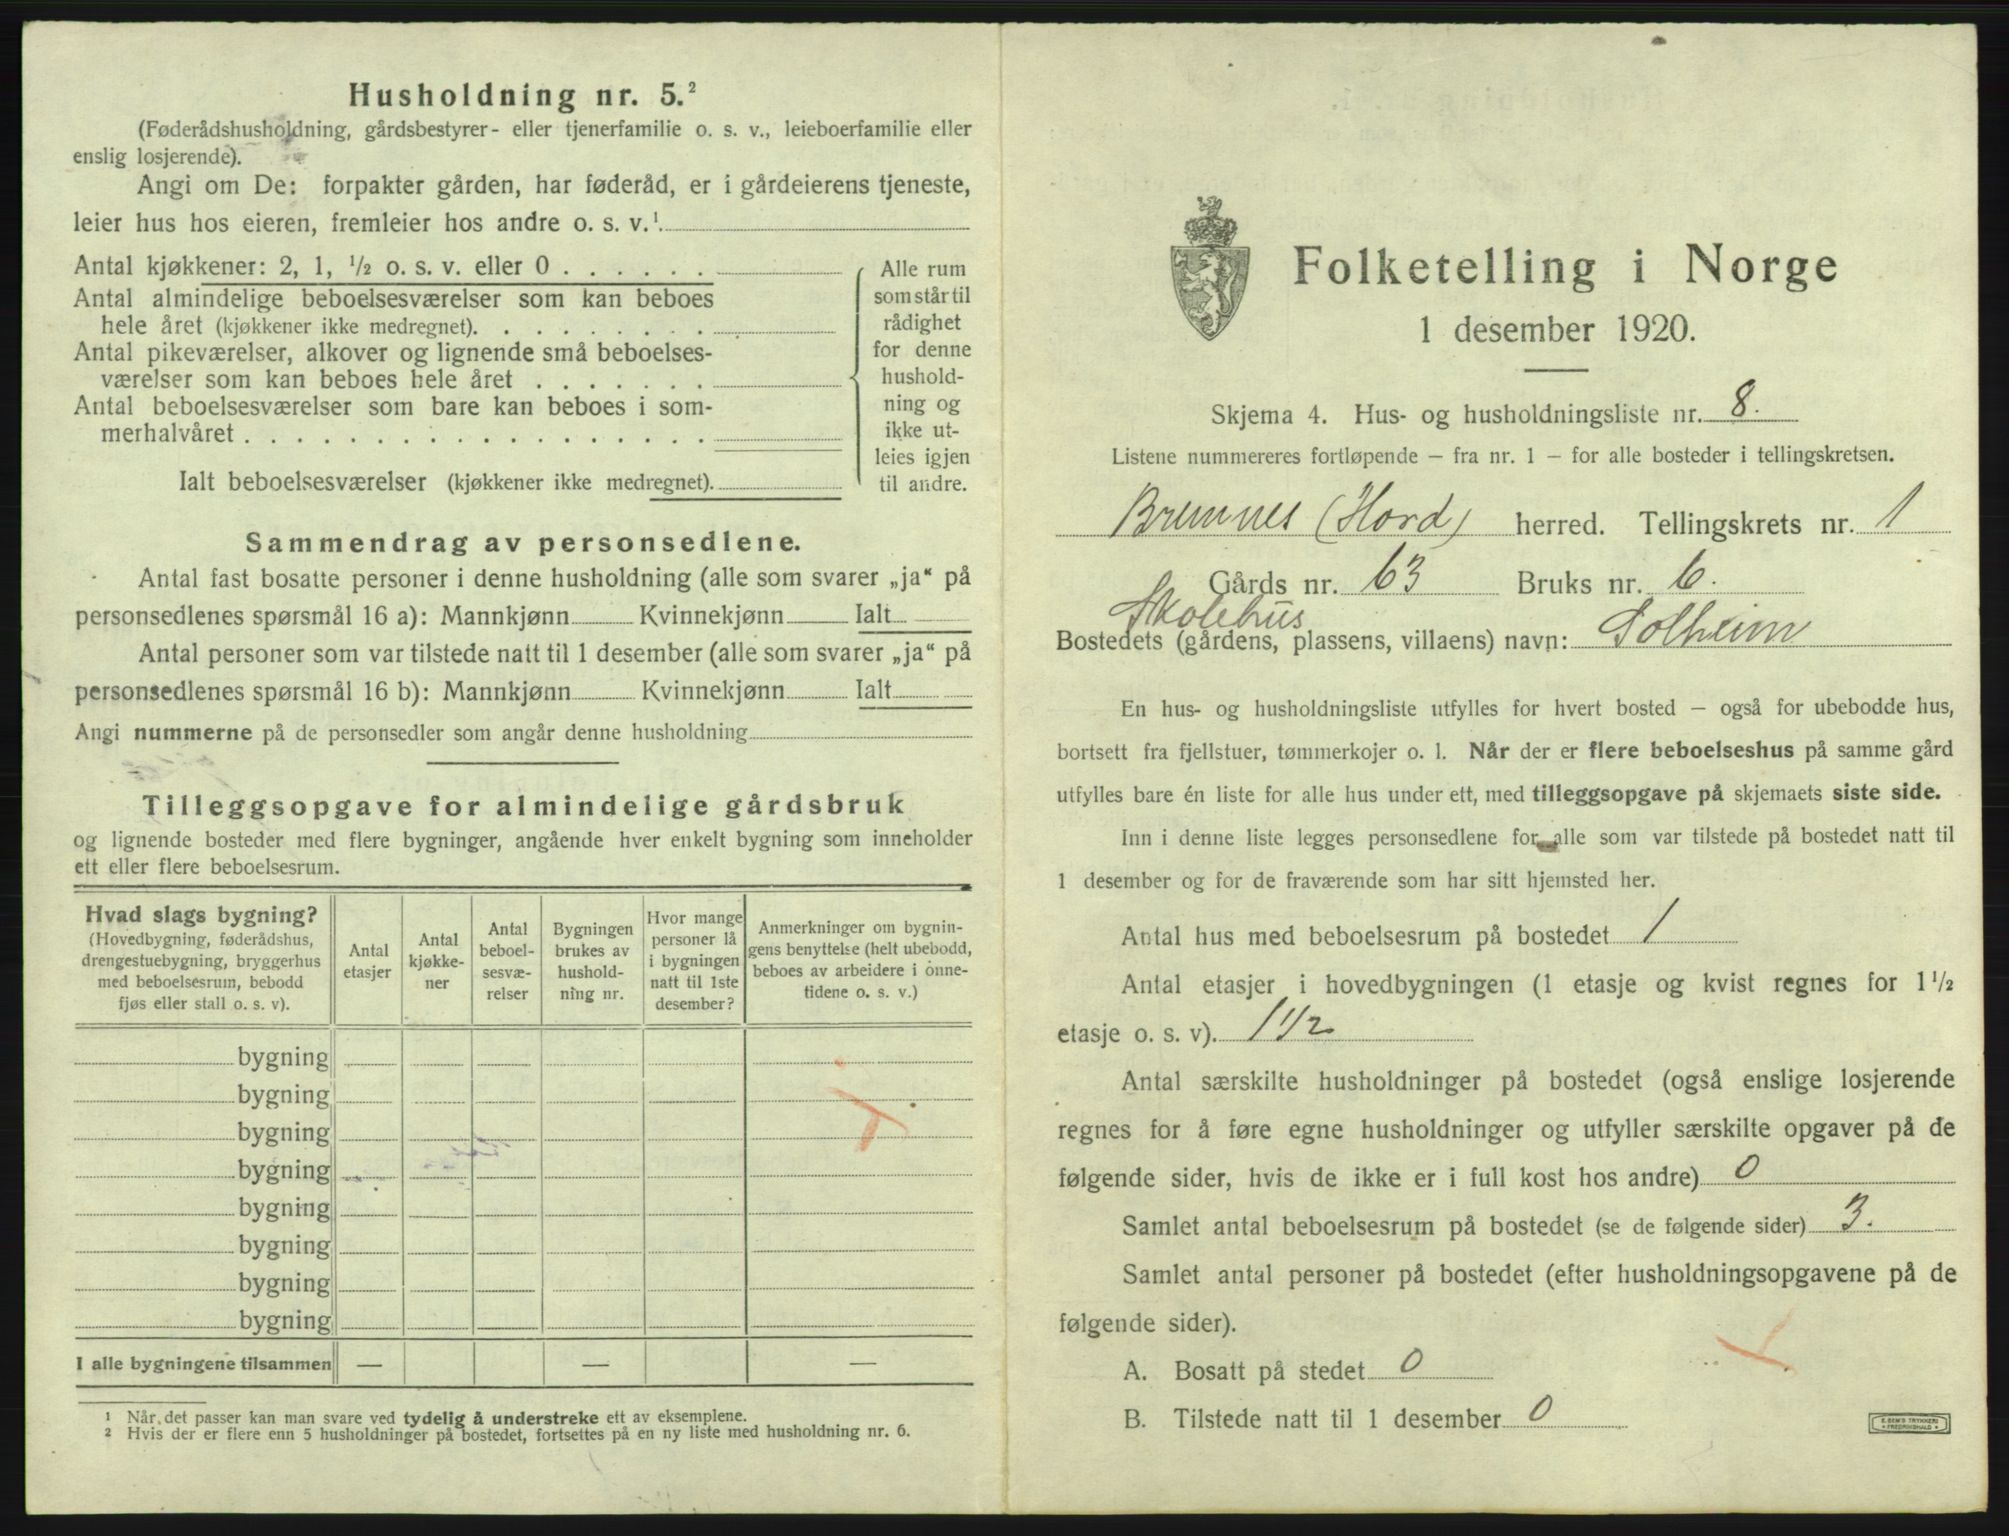 Husholdning nr. 5.²
(Føderådshusholdning, gårdsbestyrer- eller tjenerfamilie o. s. v., leieboerfamilie eller
enslig losjerende).
Angi om De: forpakter gården, har føderåd, er i gårdeierens tjeneste,
leier hus hos eieren, fremleier hos andre o. s. v.¹
Antal kjøkkener: 2, 1, ½ o. s. v. eller 0 . . . . . .
Antal almindelige beboelsesværelser som kan beboes
hele året (kjøkkener ikke medregnet). . . . . . . . .
Antal pikeværelser, alkover og lignende små beboelses-
værelser som kan beboes hele året . . . . . . .
Antal beboelsesværelser som bare kan beboes i som-
merhalvåret . . . . . . . . . . . . . . . . . .
Ialt beboelsesværelser (kjøkkener ikke medregnet).
Alle rum
som står til
rådighet
for denne
hushold-
ning og
ikke ut-
leies igjen
til andre.
Sammendrag av personsedlene.
Antal fast bosatte personer i denne husholdning (alle som svarer „ja“ på
personsedlenes spørsmål 16 a): Mannkjønn Kvinnekjønn Ialt
Antal personer som var tilstede natt til 1 desember (alle som svarer „ja“ på
personsedlenes spørsmål 16 b): Mannkjønn Kvinnekjønn Ialt
Angi nummerne på de personsedler som angår denne husholdning
Tilleggsopgave for almindelige gårdsbruk
og lignende bosteder med flere bygninger, angående hver enkelt bygning som inneholder
ett eller flere beboelsesrum.
Hvad slags bygning?
(Hovedbygning, føderådshus,
drengestuebygning, bryggerhus
med beboelsesrum, bebodd
fjøs eller stall o. s. v).
Antal
etasjer
Antal
kjøkke-
ner
Antal
beboel-
sesvæ-
relser
Bygningen
brukes av
hushold-
ning nr.
Hvor mange
personer lå
i bygningen
natt til 1ste
desember?
Anmerkninger om bygnin-
gens benyttelse (helt ubebodd,
beboes av arbeidere i onne-
tidene o. s. v.)
bygning
bygning
bygning
bygning
bygning
bygning
bygning
bygning
I alle bygningene tilsammen — — —
¹ Når det passer kan man svare ved tydelig å understreke ett av eksemplene.
² Hvis der er flere enn 5 husholdninger på bostedet, fortsettes på en ny liste med husholdning nr. 6.
Folketelling i Norge
1 desember 1920.
Skjema 4. Hus- og husholdningsliste nr. 8.
Listene nummereres fortløpende – fra nr. 1 – for alle bosteder i tellingskretsen.
Bremnes (Hord) herred. Tellingskrets nr. 1
Gårds nr. 63 Bruks nr. 6.
Skolehus
Bostedets (gårdens, plassens, villaens) navn: Solheim
En hus- og husholdningsliste utfylles for hvert bosted – også for ubebodde hus,
bortsett fra fjellstuer, tømmerkojer o. l. Når der er flere beboelseshus på samme gård
utfylles bare én liste for alle hus under ett, med tilleggsopgave på skjemaets siste side.
Inn i denne liste legges personsedlene for alle som var tilstede på bostedet natt til
1 desember og for de fraværende som har sitt hjemsted her.
Antal hus med beboelsesrum på bostedet 1
Antal etasjer i hovedbygningen (1 etasje og kvist regnes for 1½
etasje o. s. v). 1 1/2
Antal særskilte husholdninger på bostedet (også enslige losjerende
regnes for å føre egne husholdninger og utfyller særskilte opgaver på de
følgende sider, hvis de ikke er i full kost hos andre) 0
Samlet antal beboelsesrum på bostedet (se de følgende sider) 3.
Samlet antal personer på bostedet (efter husholdningsopgavene på de
følgende sider).
A. Bosatt på stedet 0
B. Tilstede natt til 1 desember 0